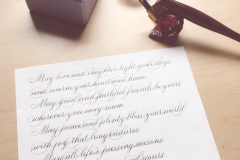 May love and laughter light your days
and warm your heart and home
May good and faithful friends be yours
wherever you may roam
May peace and plenty bless your world
with joy that long endures
May all life's passing seasons
and yours